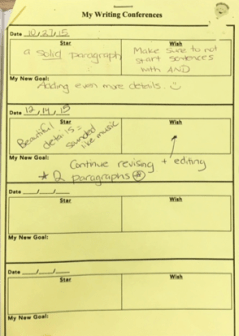 My Writing Conferences
Date 10/27/15
Star
Wish
a solid paragraph
Make sure to not
start sentences
with AND
My New Goal:
Adding even more details.
Date 12/14/15
Star
Wish
Beautiful
details =
sounded
like music
My New Goal:
Continue revising + editing
* 2 paragraphs
Date __/__/__
Star
Wish
My New Goal:
Date __/__/__
Star
Wish
My New Goal: